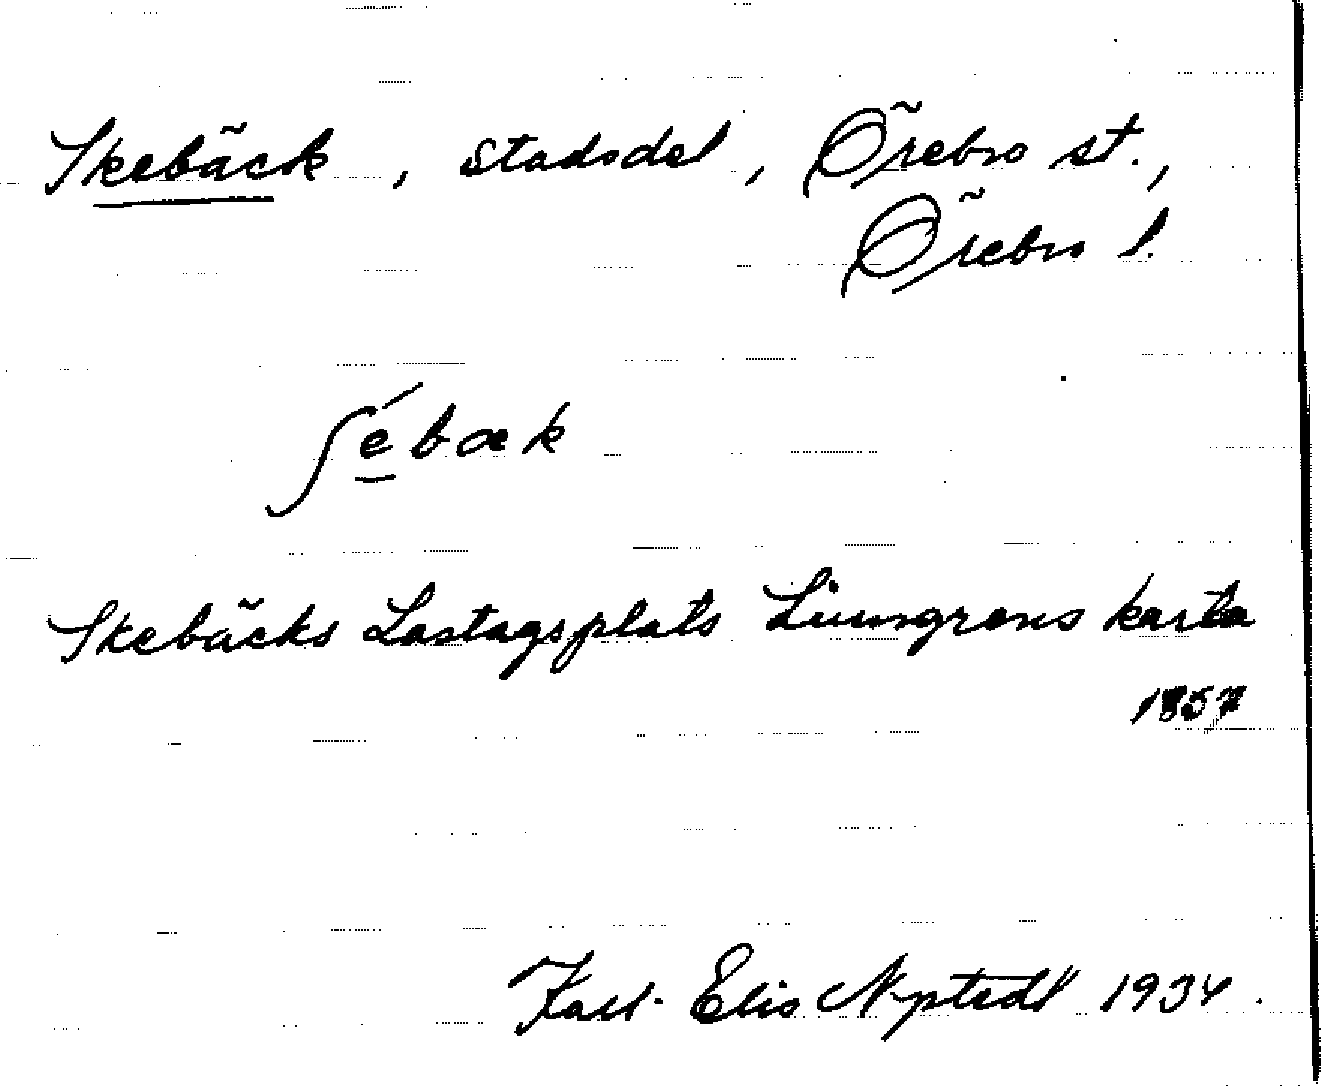 Skebäck, stadsdel, Örebro st.,
Örebro l.
ʃe̲´bæk
Skebäcks Lastagsplats Ljungrens karta
1857
Karl-Elis Nystedt 1934.